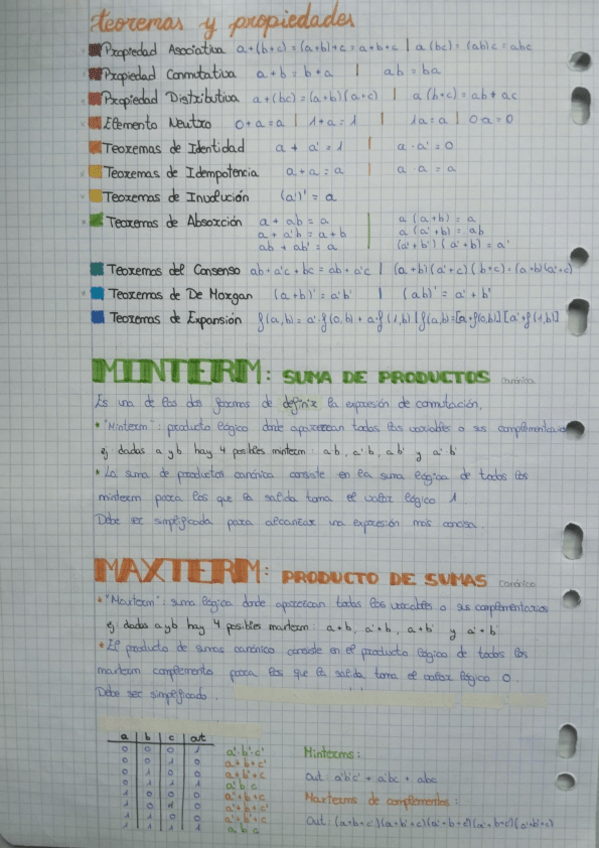 teoremas y propiedades
Propiedad Asociativa a+(b+c) = (a+b)+c = a+b+c | a(bc) = (ab)c = abc
Propiedad Conmutativa a+b = b+a | ab = ba
Propiedad Distributiva a+(bc) = (a+b)(a+c) | a(b+c) = ab + ac
Elemento Neutro 0+a=a | 1+a=1 | 1a=a | 0·a=0
Teoremas de Identidad a + a' = 1 | a·a' = 0
Teoremas de Idempotencia a+a = a | a·a = a
Teoremas de Involución (a')' = a
Teoremas de Absorción a + ab = a | a(a+b) = a
a + a'b = a+b | a(a'+b) = ab
ab + ab' = a | (a'+b')(a'+b) = a'
Teoremas del Consenso ab+a'c+bc = ab+a'c | (a+b)(a'+c)(b+c) = (a+b)(a'+c)
Teoremas de De Morgan (a+b)' = a'b' | (ab)' = a'+b'
Teoremas de Expansión f(a,b) = a'·f(0,b) + a·f(1,b) | f(a,b)=[a+f(0,b)][a'+f(1,b)]
MINTERM: SUMA DE PRODUCTOS canónica
Es una de las dos formas de definir la expresión de conmutación,
• "Minterm": producto lógico donde aparezcan todas las variables o sus complementarios
ej dados a y b hay 4 posibles minterm: a·b, a'·b, a·b' y a'·b'
• La suma de productos canónica consiste en la suma lógica de todos los
minterm para los que la salida toma el valor lógico 1.
Debe ser simplificada para alcanzar una expresión más concisa.
MAXTERM: PRODUCTO DE SUMAS canónico
• "Maxterm": suma lógica donde aparezcan todas las variables o sus complementarios
ej dados a y b hay 4 posibles maxterm: a+b, a'+b, a+b' y a'+b'
• El producto de sumas canónico consiste en el producto lógico de todos los
maxterm complemento para los que la salida toma el valor lógico 0
Debe ser simplificado.
a | b | c | out
0 0 0 1 a'·b'·c'
0 0 1 0
0 1 0 0
0 1 1 1 a'b c
1 0 0 0
1 0 1 0
1 1 0 0
1 1 1 1 a b c
Minterms:
Out: a'b'c' + a'bc + abc
Maxterms de complementos: